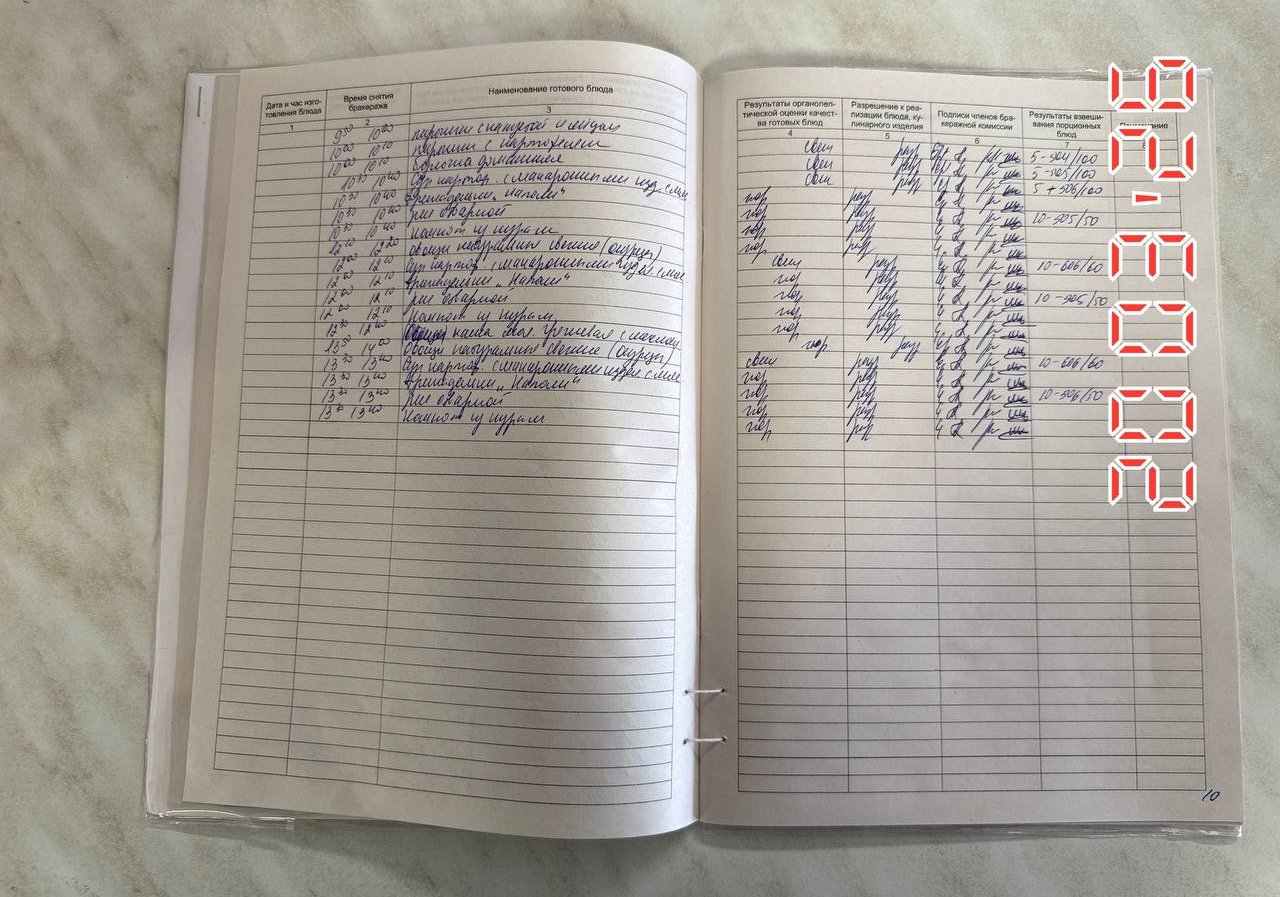 Дата и час изго-
товления блюда
Время снятия
бракеража
Наименование готового блюда
1
2
3
9 50 10 00 пирожки с капустой и яйцом
10 00 10 10 пирожки с картофелем
10 00 10 10 булочка домашняя
10 30 10 40 Суп картоф. с макаронными изд. с мяс.
10 30 10 40 Фрикадельки „Натали“
10 30 10 40 рис отварной
10 30 10 40 Компот из кураги
12 10 12 20 Овощи натуральные свежие (огурцы)
12 00 12 10 Суп картоф. с макаронными издел. с мяс.
12 00 12 10 Фрикадельки „Натали“
12 00 12 10 рис отварной
12 00 12 10 Компот из кураги
12 30 12 40 каша гречневая с маслом
13 50 14 00 Овощи натуральные свежие (огурцы)
13 30 13 40 Суп картоф. с макаронными издел. с мяс.
13 30 13 40 Фрикадельки „Натали“
13 30 13 40 рис отварной
13 30 13 40 Компот из кураги
Результаты органолеп-
тической оценки качест-
ва готовых блюд
Разрешение к реа-
лизации блюда, ку-
линарного изделия
Подписи членов бра-
керажной комиссии
Результаты взвеши-
вания порционных
блюд
Примечание
4
5
6
7
8
разр 5-504/100
разр 5-505/100
разр 5+506/100
гор разр
гор разр 10-505/50
гор разр
гор разр
разр 10-606/60
гор разр
гор разр 10-505/50
гор разр
гор разр
гор разр
разр 10-606/60
гор разр
гор разр 10-506/50
гор разр
гор разр
10
2003-2-9